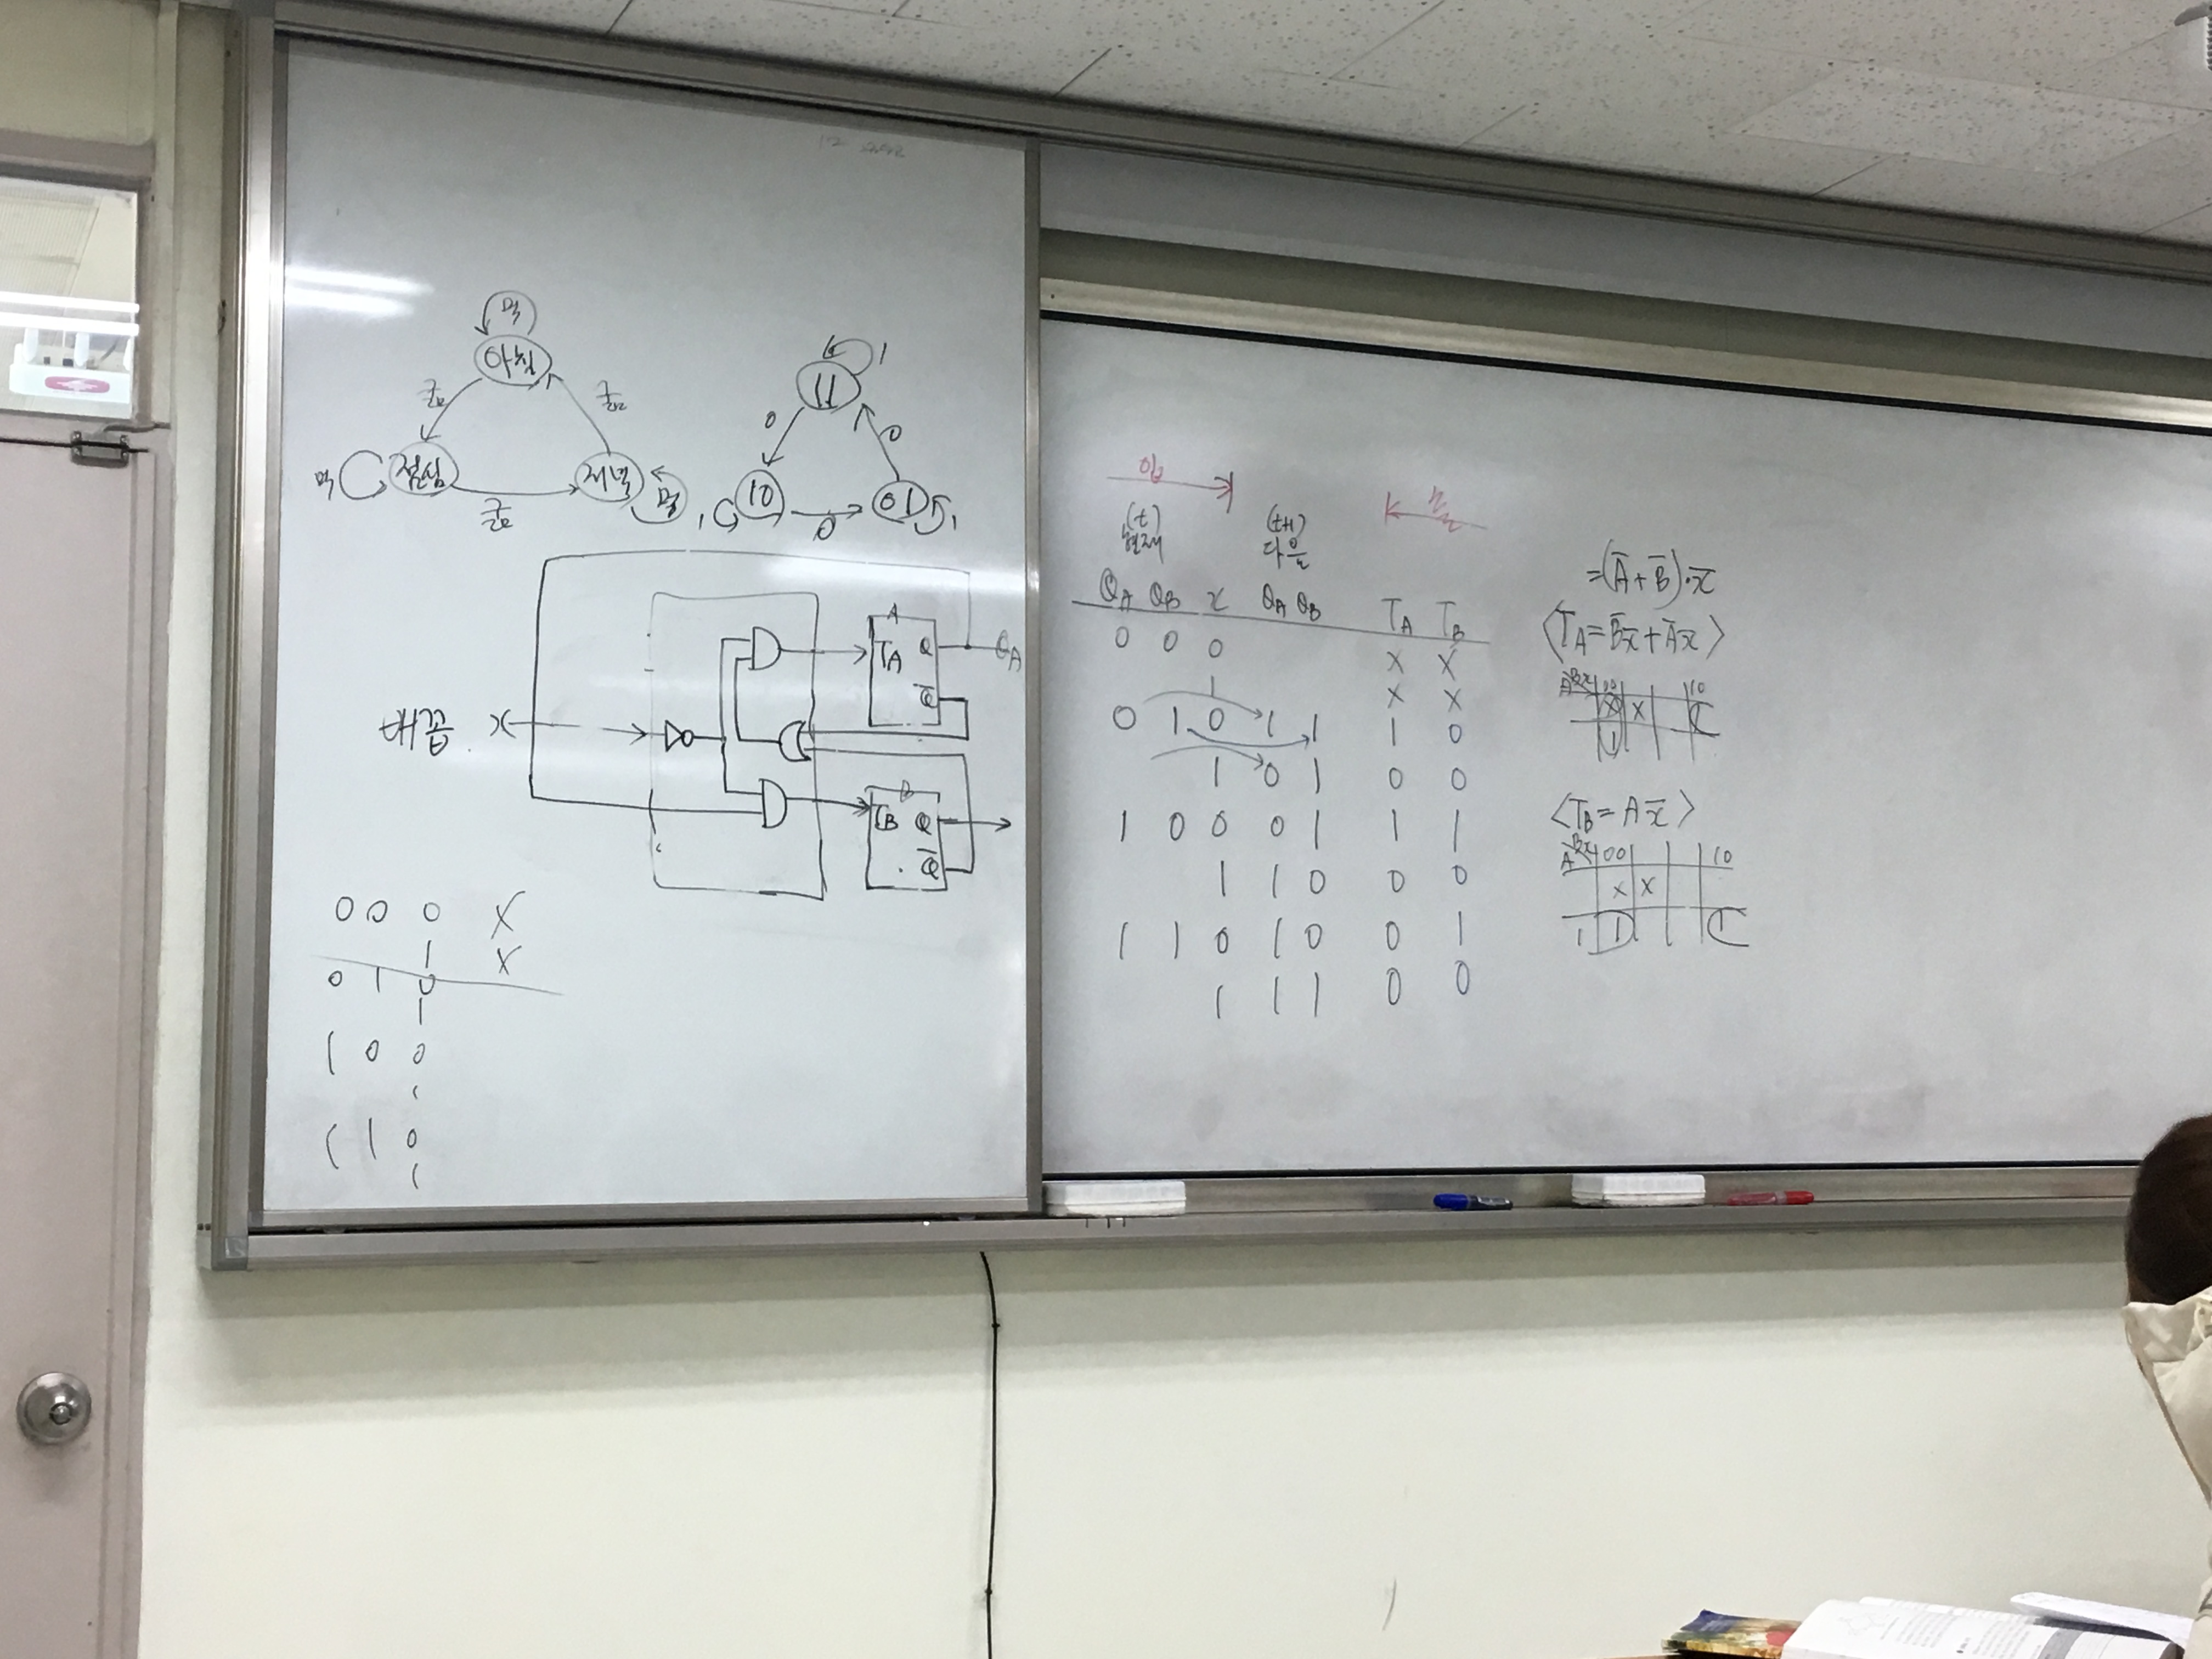 먹
아침
굶
굶
먹
점심
저녁
먹
굶
11
1
0
0
10
01
1
0
1
A
TA Q
Q̅
QA
배꼽 x
B
TB Q
Q̅
0 0 0 X
1 X
0 1 0
1
1 0 0
1
1 1 0
1
(t)
현재
(t+1)
다음
QA QB x QA QB TA TB
0 0 0 X X
1 X X
0 1 0 1 1 1 0
1 0 1 0 0
1 0 0 0 1 1 1
1 1 0 0 0
1 1 0 1 0 0 1
1 1 1 0 0
=(A̅+B̅)·x̅
<TA=B̅x̅+A̅x̅>
A Bx 00 10
X X 1
1
<TB=Ax̅>
A Bx 00 10
X X
1 1 1